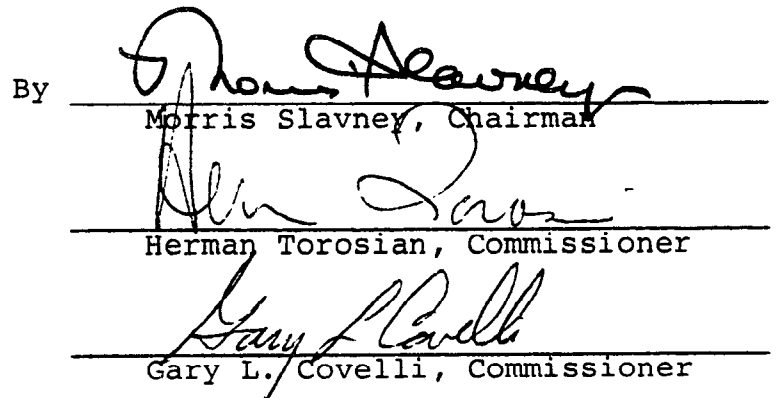 By Morris Slavney
Morris Slavney, Chairman
Herman Torosian
Herman Torosian, Commissioner
Gary L Covelli
Gary L. Covelli, Commissioner